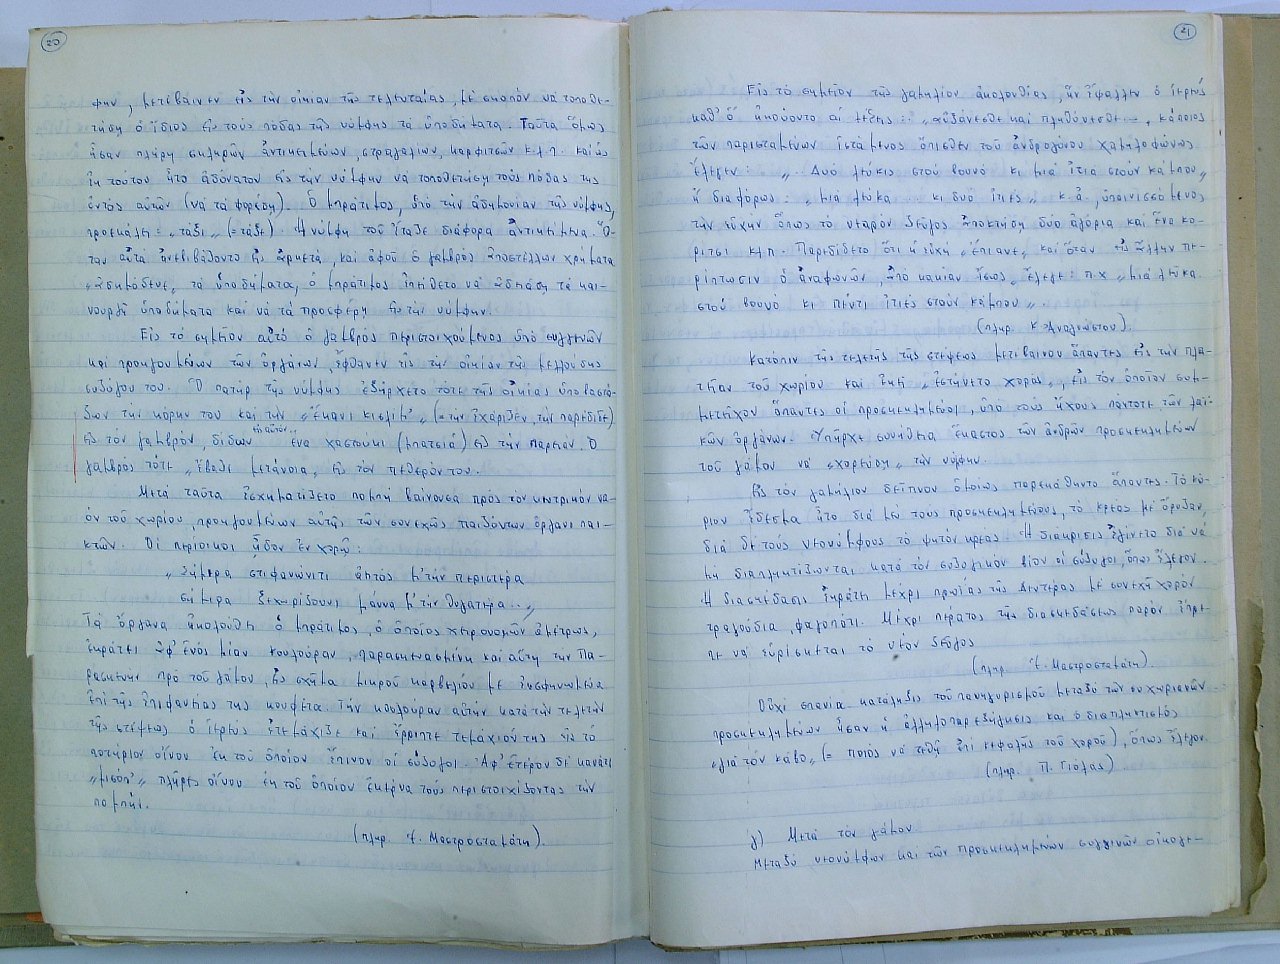 20
φην, μετέβαινεν εἰς τὴν οἰκίαν τῆς τελευταίας, μὲ σκοπὸν νὰ τοποθε-
τήσῃ ὁ ἴδιος εἰς τοὺς πόδας τῆς νύμφης τὰ ὑποδήματα. Ταῦτα ὅμως
ἦσαν πλήρη σκληρῶν ἀντικειμένων, στραγαλίων, καρφιτσῶν κ.λ.π. καὶ ὡς
ἐκ τούτου ἦτο ἀδύνατον εἰς τὴν νύμφην νὰ τοποθετήσῃ τοὺς πόδας της
ἐντὸς αὐτῶν (νὰ τὰ φορέσῃ). Ὁ μπράτιμος, ὑπὸ τὴν ἀδημονίαν τῆς νύμφης,
προεκάλει: „τάξι„ (= τάξε) Ἡ νύμφη τοῦ ἔταζε διάφορα ἀντικείμενα. Ὅ-
ταν αὐτὰ ἀνεβιβάζοντο εἰς ἀρκετά, καὶ ἀφοῦ ὁ γαμβρὸς ἀποστέλλων χρήματα
„ἀσημώδενε„ τὰ ὑποδήματα, ὁ μπράτιμος ἐπείθετο νὰ ἀδειάσῃ τὰ και-
νουργῆ ὑποδήματα καὶ νὰ τὰ προσφέρῃ εἰς τὴν νύμφην.
Εἰς τὸ σημεῖον αὐτὸ ὁ γαμβρὸς περιστοιχούμενος ὑπὸ συγγενῶν
καὶ προηγουμένων τῶν ὀργάνων, ἔφθανεν εἰς τὴν οἰκίαν τῆς μελλούσης
συζύγου του. Ὁ πατὴρ τῆς νύμφης ἐξήρχετο τότε τῆς οἰκίας ὑποβαστά-
ζων τὴν κόρην του καὶ τὴν „ἔκανι κισμέτ'„ (= τὴν ἐχάριζεν, τὴν παρέδιδε)
εἰς τὸν γαμβρόν, δίδων εἰς αὐτὸν ἕνα χαστούκι (μπατσιά) εἰς τὴν παρειάν. Ὁ
γαμβρὸς τότε „ἔβαθε μετάνοια„ εἰς τὸν πεθερόν του.
Μετὰ ταῦτα ἐσχηματίζετο πομπὴ βαίνουσα πρὸς τὸν κεντρικὸν να-
ὸν τοῦ χωρίου, προηγουμένων αὐτῆς τῶν συνεχῶς παιζόντων ὀργανοπαι-
κτῶν. Οἱ περίοικοι ᾖδον ἐν χορῷ:
„Σήμερα στιφανώνιτι ἀητὸς μ' τὴν περιστέρα
σήμερα ξεχωρίζουνι μάννα μ' τὴν θυγατέρα...„
Τὰ ὄργανα ἀκολουθεῖ ὁ μπράτιμος, ὁ ὁποῖος χειρονομῶν ἀμέτρως,
ἐκράτει ἀφ' ἑνὸς μίαν κουλούραν, παρασκευασμένη καὶ αὕτη τὴν Πα-
ρασκευὴν πρὸ τοῦ γάμου, εἰς σχῆμα μικροῦ καρβελίου μὲ ἐνσφηνωμένα
ἐπὶ τῆς ἐπιφανείας της κουφέτα. Τὴν κουλούραν αὐτὴν κατὰ τὴν τελετὴν
τῆς στέψεως ὁ ἱερεὺς ἐτεμάχιζε καὶ ἔρριπτε τεμάχιόν της εἰς τὸ
ποτήριον οἴνου ἐκ τοῦ ὁποίου ἔπινον οἱ σύζυγοι. Ἀφ' ἑτέρου δὲ κανάτι
„μισοκ'„ πλῆρες οἴνου ἐκ τοῦ ὁποίου ἐκέρνα τοὺς περιστοιχίζοντας τὴν
πομπήν.
(πληρ. Ἀ. Μαστροσταμάτη).
21
Εἰς τὸ σημεῖον τῆς γαμηλίου ἀκολουθίας, ἣν ἔψαλλεν ὁ ἱερεύς
καθ' ὃ ἠκούοντο αἱ λέξεις: „αὐξάνεσθε καὶ πληθύνεσθε...„ κάποιος
τῶν παρισταμένων ἱστάμενος ὄπισθεν τοῦ ἀνδρογύνου χαμηλοφώνως
ἔλεγεν: „Δυὸ λεῦκις στοὺ βουνὸ κι μιὰ ἰτιὰ στοὺν κάμπου„
ἢ διαφόρως: „μιὰ λεύκα... κι δυὸ ἰτιές„ κ.ἄ. ὑπαινισσόμενος
τὴν εὐχὴν ὅπως τὸ νεαρὸν ζεῦγος ἀποκτήσῃ δύο ἀγόρια καὶ ἕνα κο-
ρίτσι κ.λ.π. Παρεδίδετο ὅτι ἡ εὐχὴ „ἔπιανε„ καὶ ὅταν εἰς ἄλλην πε-
ρίπτωσιν ὁ ἀναφωνῶν, ἀπὸ κακίαν ἴσως, ἔλεγε: π.χ „μιὰ λεῦκα
στοὺ βουνὸ κι πέντι ἰτιὲς στοὺν κάμπου„.
(πληρ. Κ. Ἀναγνώστου).
Κατόπιν τῆς τελετῆς τῆς στέψεως μετέβαινον ἅπαντες εἰς τὴν πλα-
τεῖαν τοῦ χωρίου καὶ ἐκεῖ „ἐστήνετο χορός„, εἰς τὸν ὁποῖον συμ-
μετεῖχον ἅπαντες οἱ προσκεκλημένοι, ὑπὸ τοὺς ἤχους πάντοτε τῶν λαϊ-
κῶν ὀργάνων. Ὑπῆρχε συνήθεια ἕκαστος τῶν ἀνδρῶν προσκεκλημένων
τοῦ γάμου νὰ „χορεύσῃ„ τὴν νύμφην.
Εἰς τὸν γαμήλιον δεῖπνον ὁμοίως παρεκάθηντο ἅπαντες. Τὸ κύ-
ριον ἔδεσμα ἦτο διὰ μὲν τοὺς προσκεκλημένους, τὸ κρέας μὲ ὄρυζαν,
διὰ δὲ τοὺς νεονύμφους τὸ ψητὸν κρέας. Ἡ διάκρισις ἐγίνετο διὰ νὰ
μὴ διαπληκτίζωνται κατὰ τὸν συζυγικὸν βίον οἱ σύζυγοι, ὅπως ἔλεγον.
Ἡ διασκέδασις ἐκράτει μέχρι πρωίας τῆς Δευτέρας μὲ συνεχῆ χορὸν
τραγούδια, φαγοπότι. Μέχρι πέρατος τῆς διασκεδάσεως παρὸν ἔπρε-
πε νὰ εὑρίσκεται τὸ νέον ζεῦγος
(πληρ. Ἀ. Μαστροσταμάτη).
Οὐχὶ σπανία κατάληξις τοῦ πανηγυρισμοῦ μεταξὺ τῶν συγχωριανῶν
προσκεκλημένων ἦσαν ἡ ἀλληλοπαρεξήγησις καὶ ὁ διαπληκτισμὸς
„γιὰ τὸν κάβο„ (= ποιὸς νὰ τεθῇ ἐπὶ κεφαλῆς τοῦ χοροῦ), ὅπως ἔλεγον.
(πληρ. Π. Γιόλας)
γ) Μετὰ τὸν γάμον.
Μεταξὺ νεονύμφων καὶ τῶν προσκεκλημένων συγγενῶν οἰκογε-